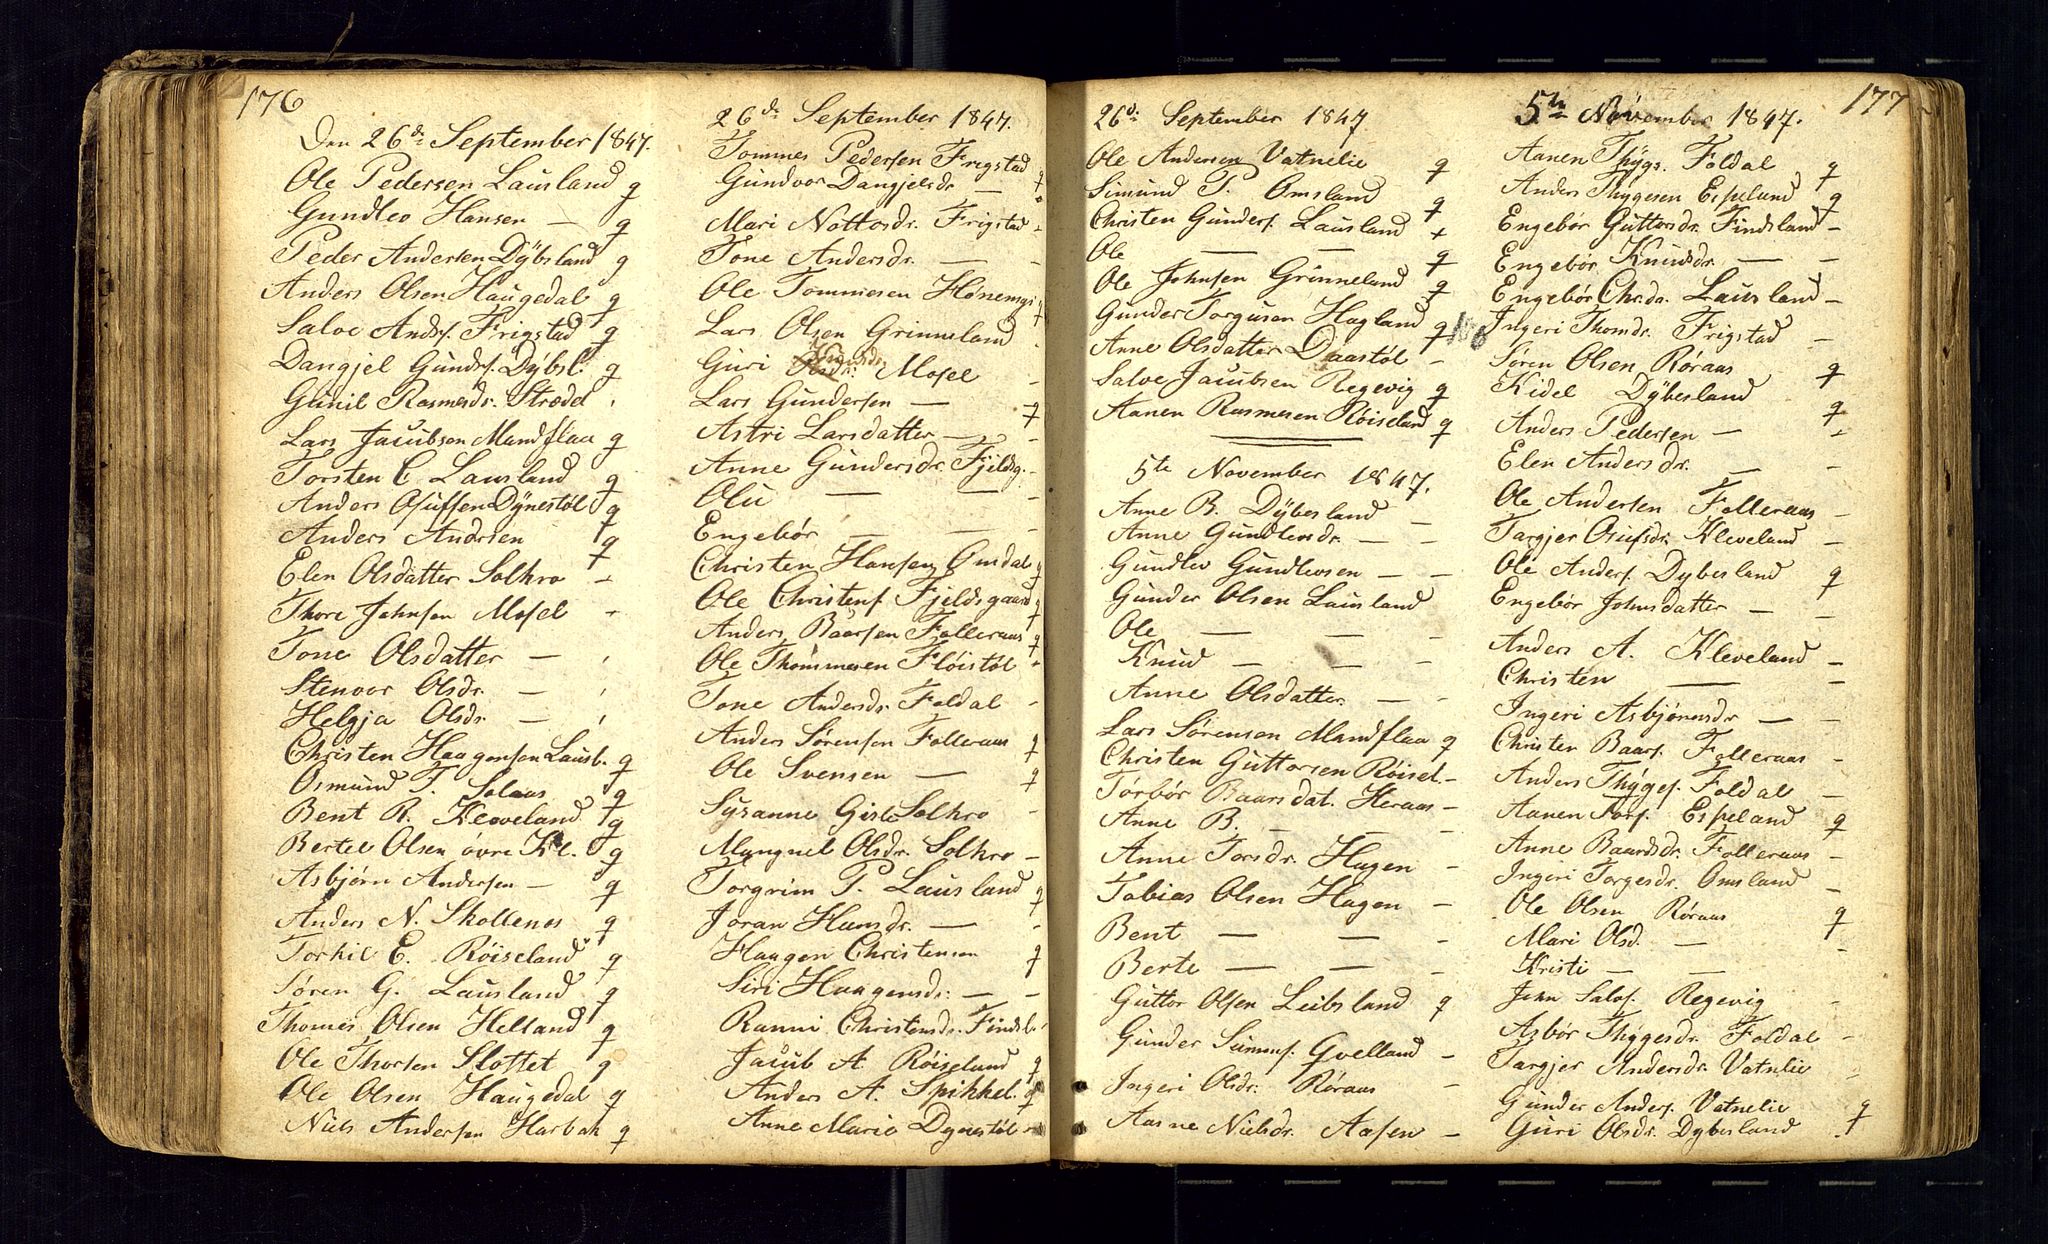 176
Den 26de September 1847.
Ole Pedersen Lausland q
Gundleo Hansen — q
Peder Andersen Dÿbsland q
Anders Olsen Haugedal q
Salve Andsf. Frigstad q
Dangjel Gundsf. Dÿbsl. q
Gunil Rasmesdr. Strædet
Lars Jacobsen Mandflaa q
Torsten C. Lausland q
Anders Osuffsen Dÿnestøl q
Anders Andrsen q
Elen Olsdatter Solkro -
Thore Johnsen Mosel -
Tone Olsdatter —
Stenvor Olsdr. —
Helgja Olsdr. —
Christen Haagensen Lausl. q
Osmund T. Solaas q
Bent R. Kleveland q
Bertel Olsen øvre Kl. q
Asbjørn Andersen — q
Anders N. Skollenes q
Torkil E. Røiseland q
Søren G. Lausland q
Thomes Olsen Helland q
Ole Thorsen Slottet q
Ole Olsen Haugedal q
Niels Andersen Harbak q
26de September 1847.
Tommes Pedersen Frigstad q
Gundvor Dangjelsdr —
Mari Nottosdr. Frigstad -
Tone Andersdr. — -
Ole Tommesen Hønemyr q
Lars Olsen Grinneland
Guri Mosel -
Lars Gundersen — q
Astri Larsdatter — -
Anne Gundersdr. Fjeldsg. -
Olu — — -
Engebør — -
Christen Hansen Omdal q
Ole Christenf. Fjeldsgaard q
Anders Baarsen Folleraas q
Ole Thommesen Fløistøl +
Tone Andersdr. Foldal -
Anders Sørensen Folleraas q
Ole Svensen — q
Sysanne Gisle Solkro -
Mangnel Olsdr. Solkro -
Torgrim P. Lausland q
Joran Hansdr. — -
Haagen Christensen q
Siri Haagensdr. — -
Ranni Christensdr. Findsl.
Jacub A. Røiseland q
Anders A. Spikkel. q
Anne Marie Dÿnestøl -
26de September 1847
Ole Andersen Vatnelie q
Simund P. Omsland q
Christen Gundersf. Lausland +
Ole — — q
Ole Johnsen Grinneland q
Gunder Torgusen Hagland q
Anne Olsdatter Daastøl -
Salve Jacubsen Regevig q
Aanen Rasmesen Røiseland q
5te November 1847.
Anne B. Dÿbesland —
Anne Gundlevsdr. — -
Gundlev Gundlevsen — -
Gunder Olsen Lausland
Ole — — -
Knud — — -
Anne Olsdatter — -
Lars Sørensen Mandflaa q
Christen Guttorsen Røisel. -
Tørbør Baarsdat. Heraas -
Anne B. — — -
Anne Torsdr. Hagen -
Tobias Olsen Hagen -
Bent — — -
Berte — — -
Guttor Olsen Leibsland q
Gunder Gvelland -
Ingeri Olsdr. Røraas -
Aasne Nielsdr. Aasen -
177
5te November 1847.
Aanen Thÿgs. Foldal q
Anders Thÿgesen Espeland q
Engebør Guttorsdr. Findsland -
Engebør Knudsdr. — -
Engebør Chr.dr. Lausland -
Ingeri Thomdr. Frigstad -
Søren Olsen Røraas q
Kidel Dÿbesland q
Anders Pedersen — +
Elen Andersdr. — -
Ole Andersen Folleraas -
Targjer Osufsdr. Kleveland -
Ole Andersf. Dÿbesland q
Engebør Johnsdatter — -
Anders A. Kleveland -
Christen — -
Ingeri Asbjønsdr — -
Christen Baarsf. Folleraas -
Anders Thÿgesf. Foldal -
Aanen Torsf. Espeland q
Anne Baardsdr. Folleraas -
Ingeri Torgersdr. Omsland -
Ole Olsen Røraas q
Mari Olsd. — -
Kristi — —
John Salvsf. Regevig -
Asbør Thÿgesdr. Foldal -
Targjer Andersdr. Vatnlie -
Gunder Andersf. Vatnelie q
Guri Olsdr. Dÿbesland